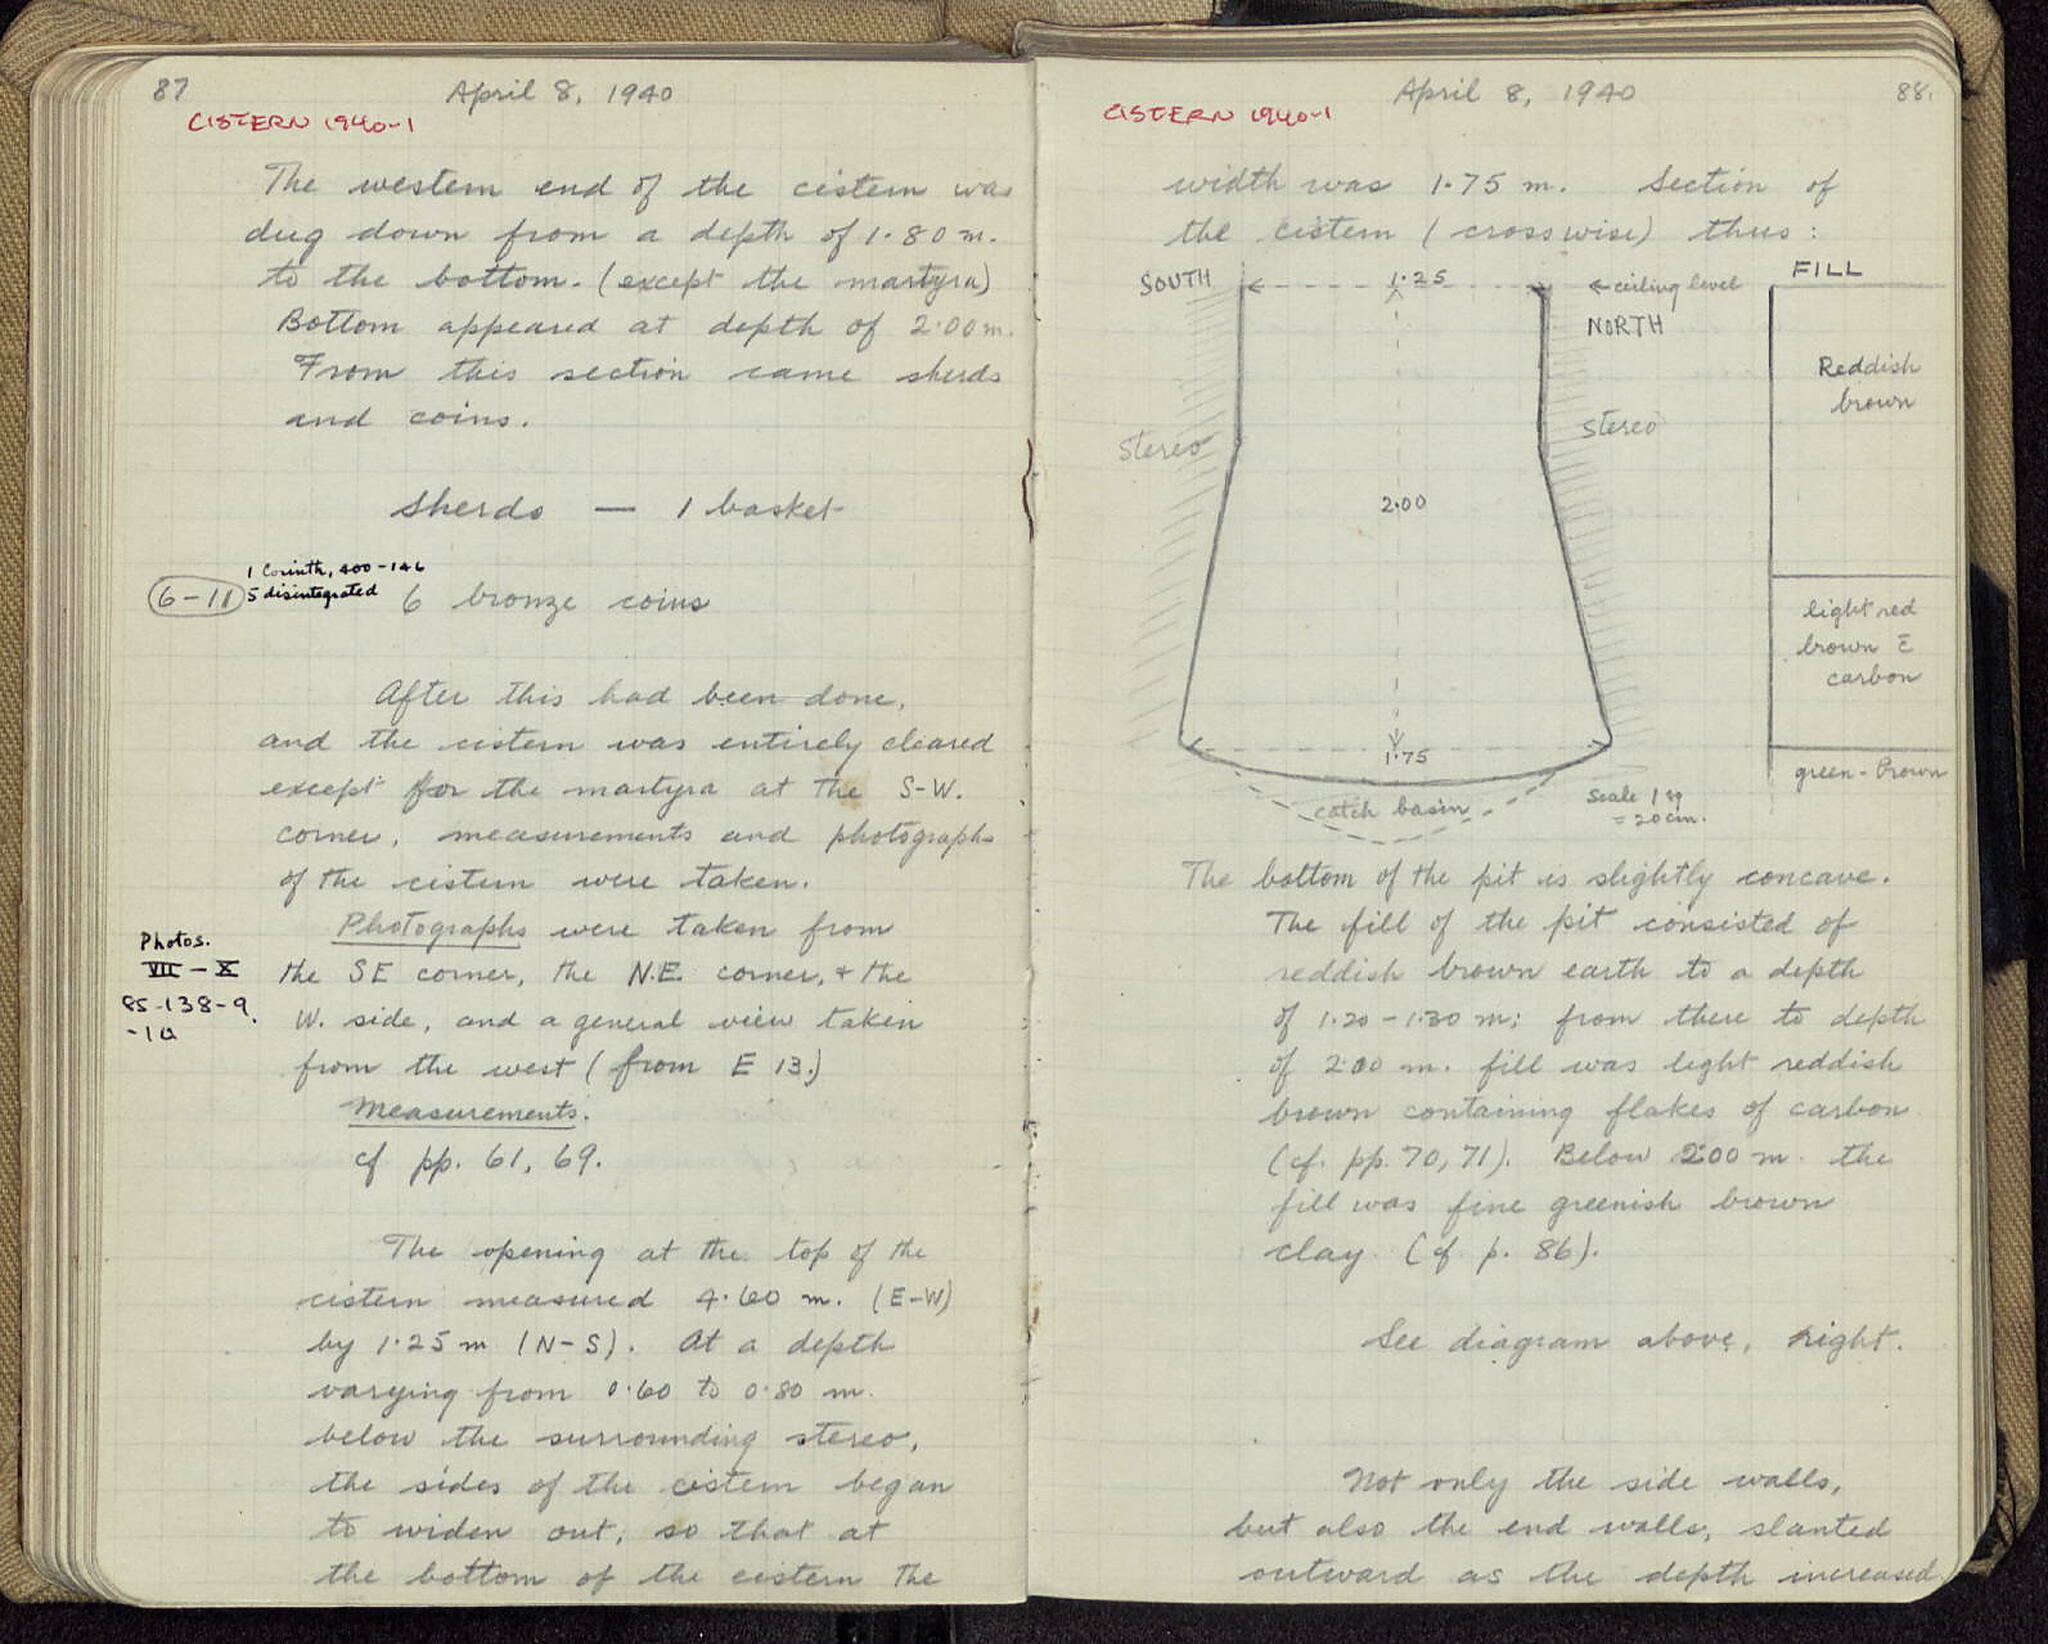 87
April 8, 1940
CISTERN 1940-1
The western end of the cistern was
dug down from a depth of 1.80 m.
to the bottom. (except the martyra)
Bottom appeared at depth of 2.00 m.
From this section came sherds
and coins.
sherds — 1 basket
1 Corinth, 400-146
6-11
5 disintegrated
6 bronze coins
After this had been done,
and the cistern was entirely cleared
except for the martyra at the S-W.
corner, measurements and photographs
of the cistern were taken.
Photographs were taken from
the SE corner, the N.E. corner, + the
W. side, and a general view taken
from the west (from E 13.)
Photos.
VII - X
85-138-9.
-10
Measurements.
cf pp. 61, 69.
The opening at the top of the
cistern measured 4.60 m. (E-W)
by 1.25 m (N-S). At a depth
varying from 0.60 to 0.80 m.
below the surrounding stereo,
the sides of the cistern began
to widen out, so that at
the bottom of the cistern the
April 8, 1940
88.
CISTERN 1940-1
width was 1.75 m. Section of
the cistern (crosswise) thus:
SOUTH
1.25
←ceiling level
NORTH
FILL
Reddish
brown
stereo
stereo
2.00
light red
brown c̄
carbon
1.75
green-brown
catch basin
Scale 1
= 20 cm.
The bottom of the pit is slightly concave.
The fill of the pit consisted of
reddish brown earth to a depth
of 1.20 - 1.30 m; from there to depth
of 2.00 m. fill was light reddish
brown containing flakes of carbon
(cf. pp. 70, 71). Below 2.00 m. the
fill was fine greenish brown
clay. (cf p. 86).
See diagram above, right.
Not only the side walls,
but also the end walls, slanted
outward as the depth increased.